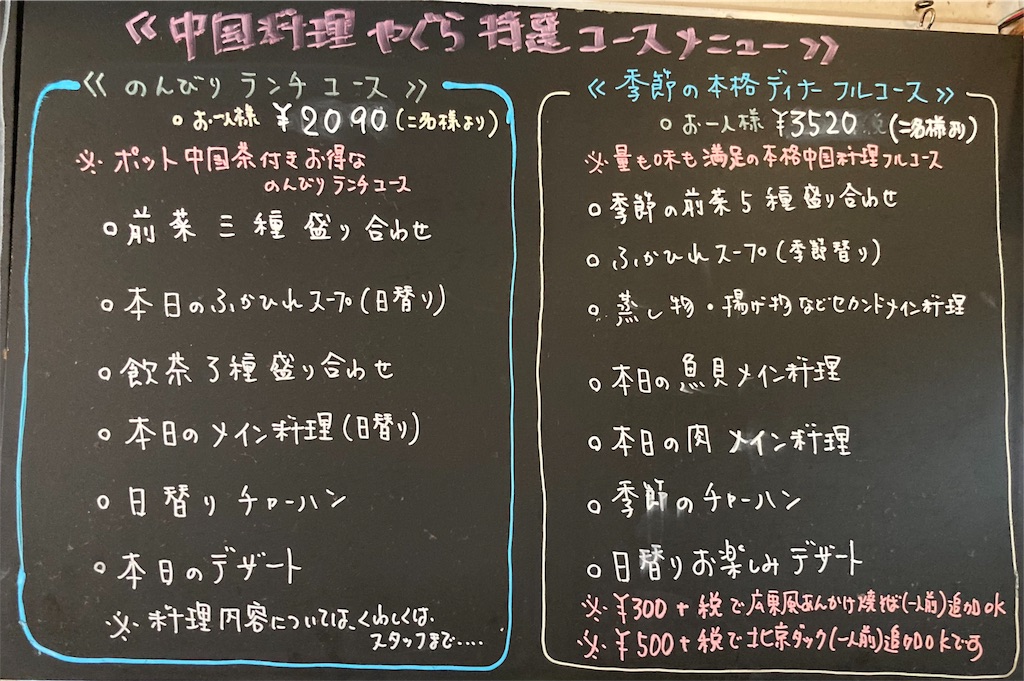 《中国料理 やぐら 特選コースメニュー》
《のんびりランチコース》
○お一人様 ¥2090(二名様より)
※ポット中国茶付きお得な
のんびりランチコース
○前菜三種盛り合わせ
○本日のふかひれスープ(日替り)
○飲茶3種盛り合わせ
○本日のメイン料理(日替り)
○日替りチャーハン
○本日のデザート
※料理内容については、くわしくは、
スタッフまで....
《季節の本格ディナーフルコース》
○お一人様 ¥3520(二名様より)
※量も味も満足の本格中国料理フルコース
○季節の前菜5種盛り合わせ
○ふかひれスープ(季節替り)
○蒸し物・揚げ物などセカンドメイン料理
○本日の魚貝メイン料理
○本日の肉メイン料理
○季節のチャーハン
○日替りお楽しみデザート
※¥300+税で広東風あんかけ焼そば(一人前)追加OK
※¥500+税で北京ダック(一人前)追加OKです